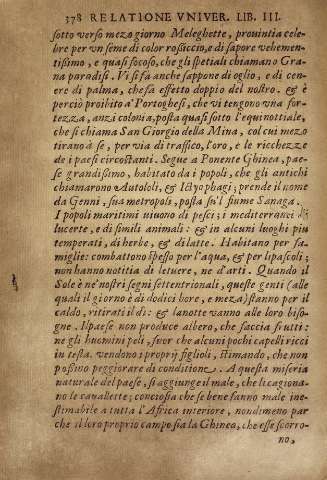 378 RELATIONE VNIVER. LIB. III.
sotto verso mezo giorno Meleghette, prouintia cele-
bre per vn seme di color rossiccio, e di sapore vehemen-
tissimo, e quasi focoso, che gli spetiali chiamano Gra-
na paradisi. Vi si fà anche sappone di oglio, e di cene-
re di palma, che fà effetto doppio del nostro. & è
perciò prohibito a' Portoghesi, che vi tengono vna for-
tezza, anzi colonia, posta quasi sotto l'equinottiale,
che si chiama San Giorgio della Mina, col cui mezo
tirano à se, per via di traffico, l'oro, e le ricchezze
de i paesi circostanti. Segue a Ponente Ghinea, pae-
se grandissimo, habitato da i popoli, che gli antichi
chiamarono Autololi, & Ictyophagi; prende il nome
da Genni, sua metropoli, posta sù'l fiume Sanaga.
I popoli maritimi viuono di pesci; i mediterranei di
lucerte, e di simili animali: & in alcuni luoghi piu
temperati, di herbe, & di latte. Habitano per fa-
miglie: combattono spesso per l'acqua, & per li pascoli;
non hanno notitia di letere, ne d'arti. Quando il
Sole è ne' nostri segni settentrionali, queste genti (alle
quali il giorno è di dodici hore, e meza) stanno per il
caldo, ritirati il dì: & la notte vanno alle loro biso-
gne. Il paese non produce albero, che faccia frutti:
ne gli huomini peli, fuor che alcuni pochi capelli ricci
in testa. vendono i proprij figlioli, stimando, che non
possino peggiorare di conditione. A questa miseria
naturale del paese, si aggiunge il male, che li cagiona-
no le cauallette; conciosia che se bene fanno male ine-
stimabile a tutta l'Africa interiore, nondimeno par
che il loro proprio campo sia la Ghinea, che esse scorro-
no,